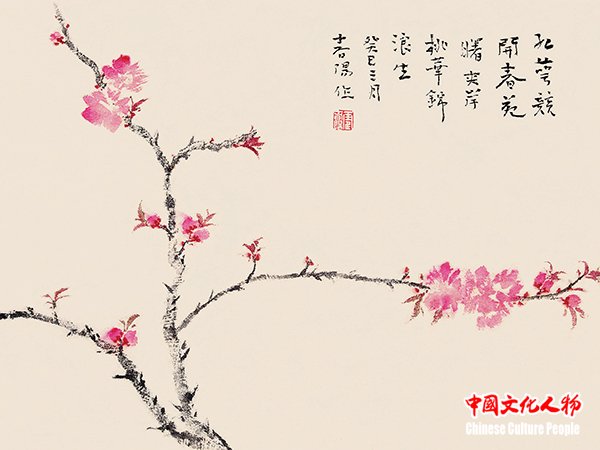 紅萼競
開春苑
曙夾岸
桃華錦
浪生
癸巳三月
中國文化人物
Chinese Culture People